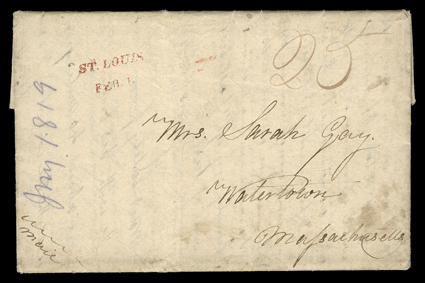 ST. LOUIS
FEB. 1.
25
Jany. 1819
Mrs. Sarah Gay.
Watertown
Massachusetts